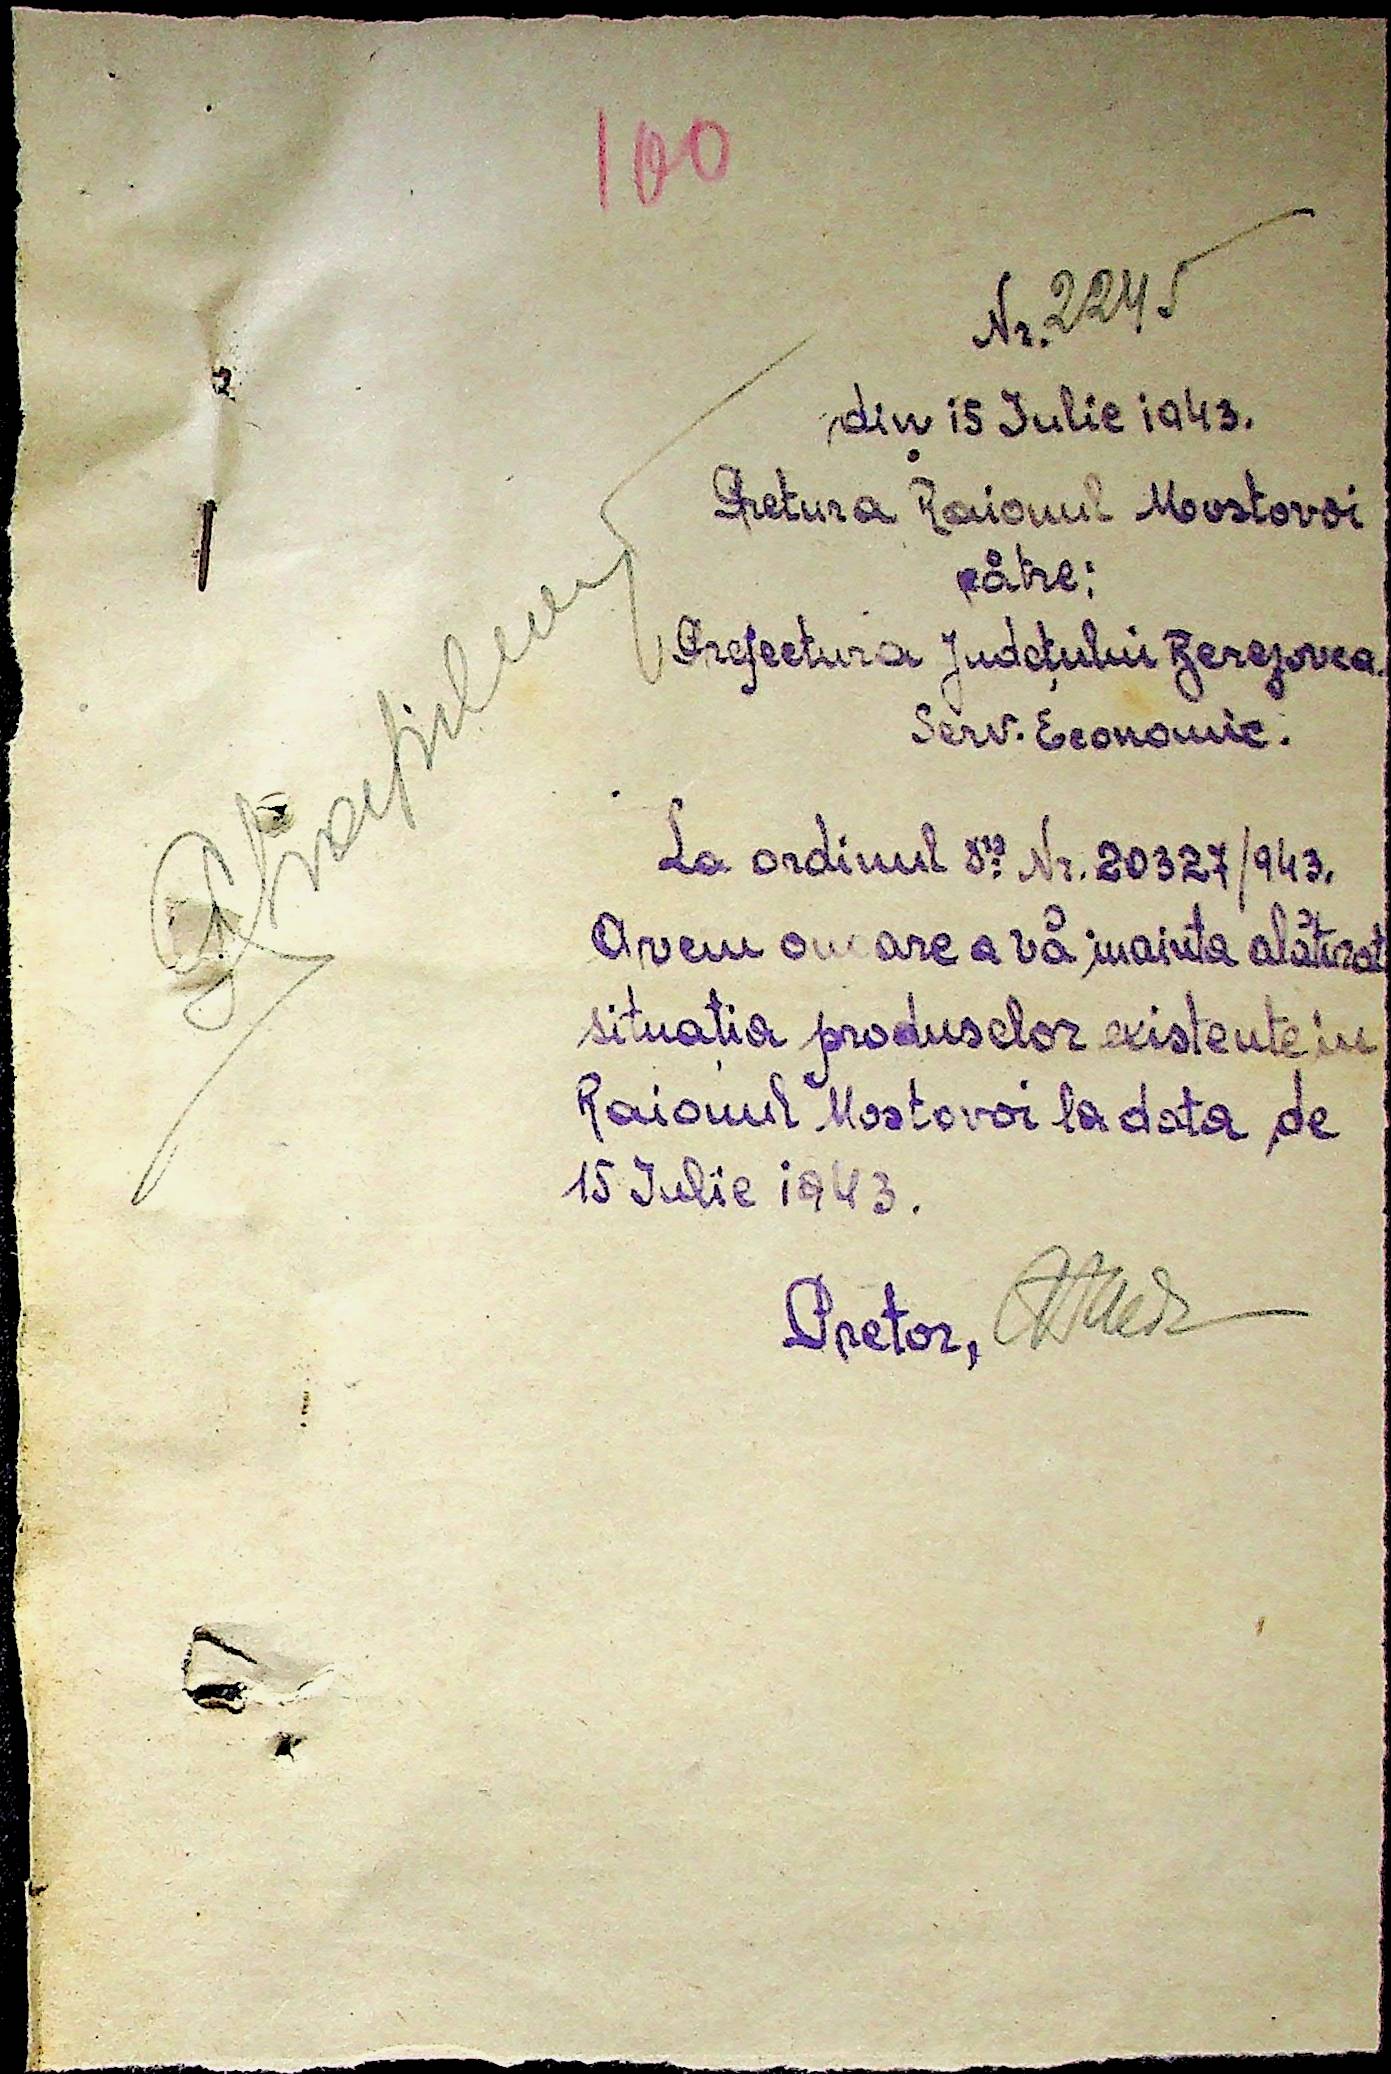 100
Nr. 2245
din 15 Iulie 1943.
Pretura Raionul Mostovoi
către:
Prefectura Județului Berezovca.
Serv. Economic.
La ordinul Nr. 20327/943.
Avem onoare a vă inainta alăturat
situația produselor existente in
Raionul Mostovoi la data de
15 Iulie 1943.
Pretor,